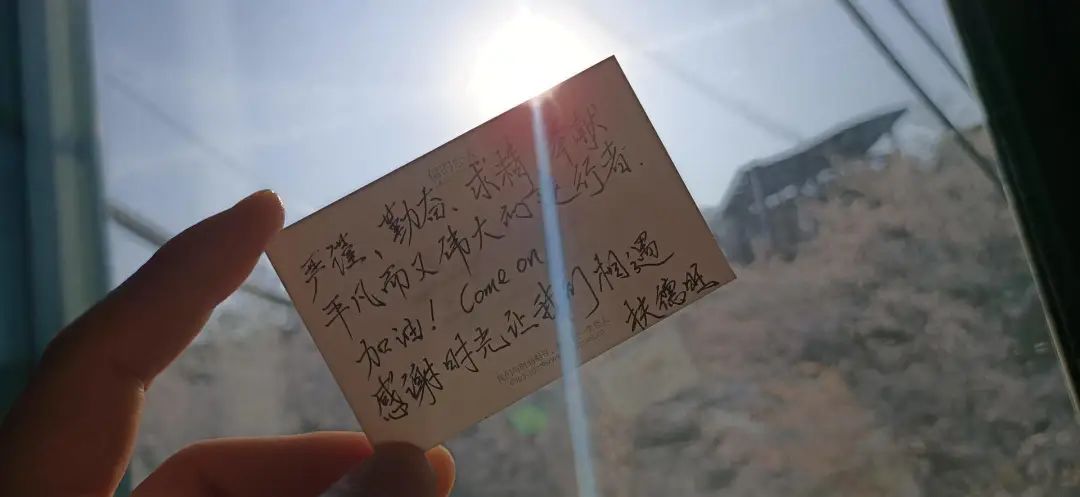 严谨、勤奋、求精、奉献
平凡而又伟大的逆行者.
加油! Come on
感谢时光让我们相遇
扶德旺